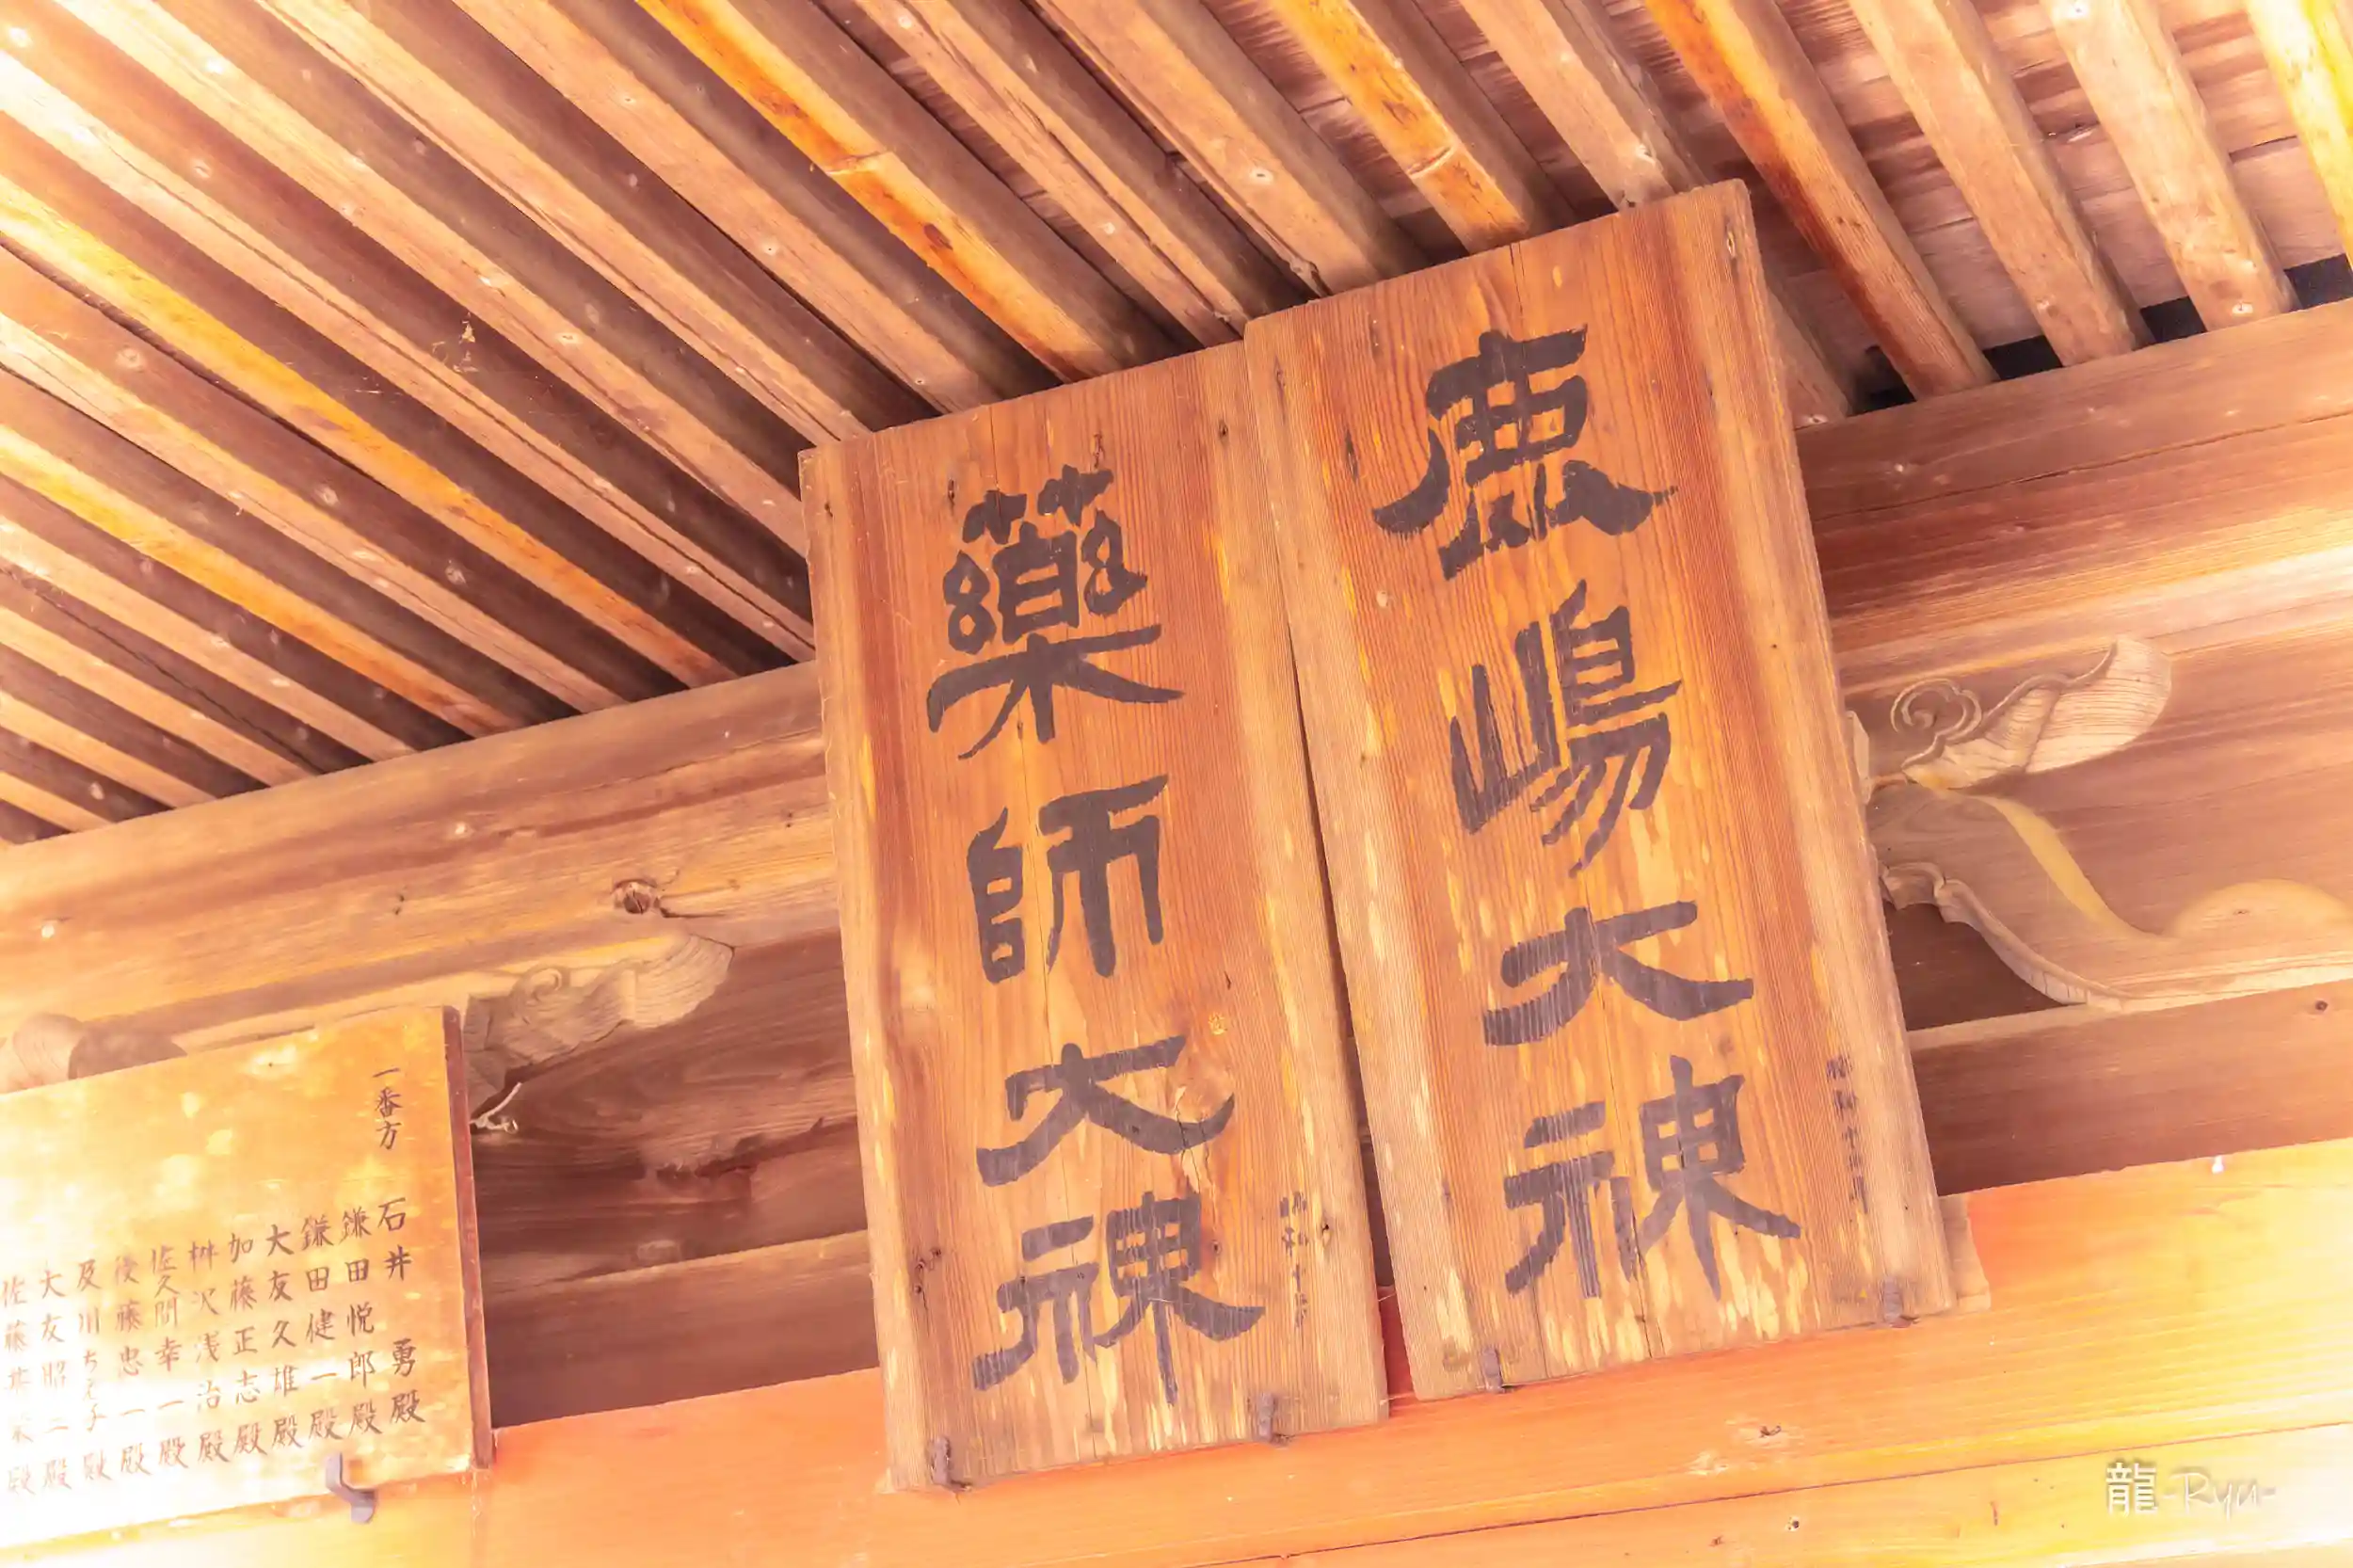 鹿嶋大神
藥師大神
一番方
石井勇殿
鎌田悦郎殿
鎌田健一殿
大友久雄殿
加藤正志殿
桝沢浅治殿
佐久間幸一殿
後藤忠一殿
及川ちゑ子殿
大友昭二殿
佐藤基 殿
龍-Ryu-